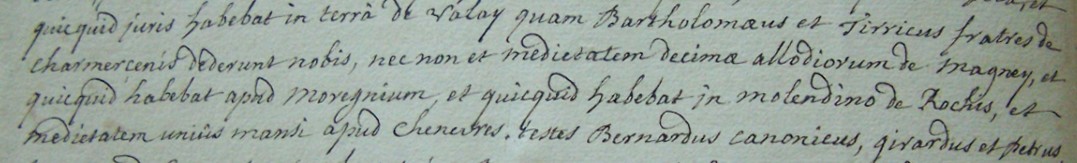 quicquid juris habebat in terrâ de Valay quam Bartholomæus et Tirricus fratres de
charmercenis dederunt nobis, nec non et medietatem decimæ allodiorum de magney, et
quicquid habebat apud moregnium, et quicquid habebat in molendino de Rochis, et
medietatem uniüs mansi apud chenevres. testes Bernardus canonicus, girardus et petrus